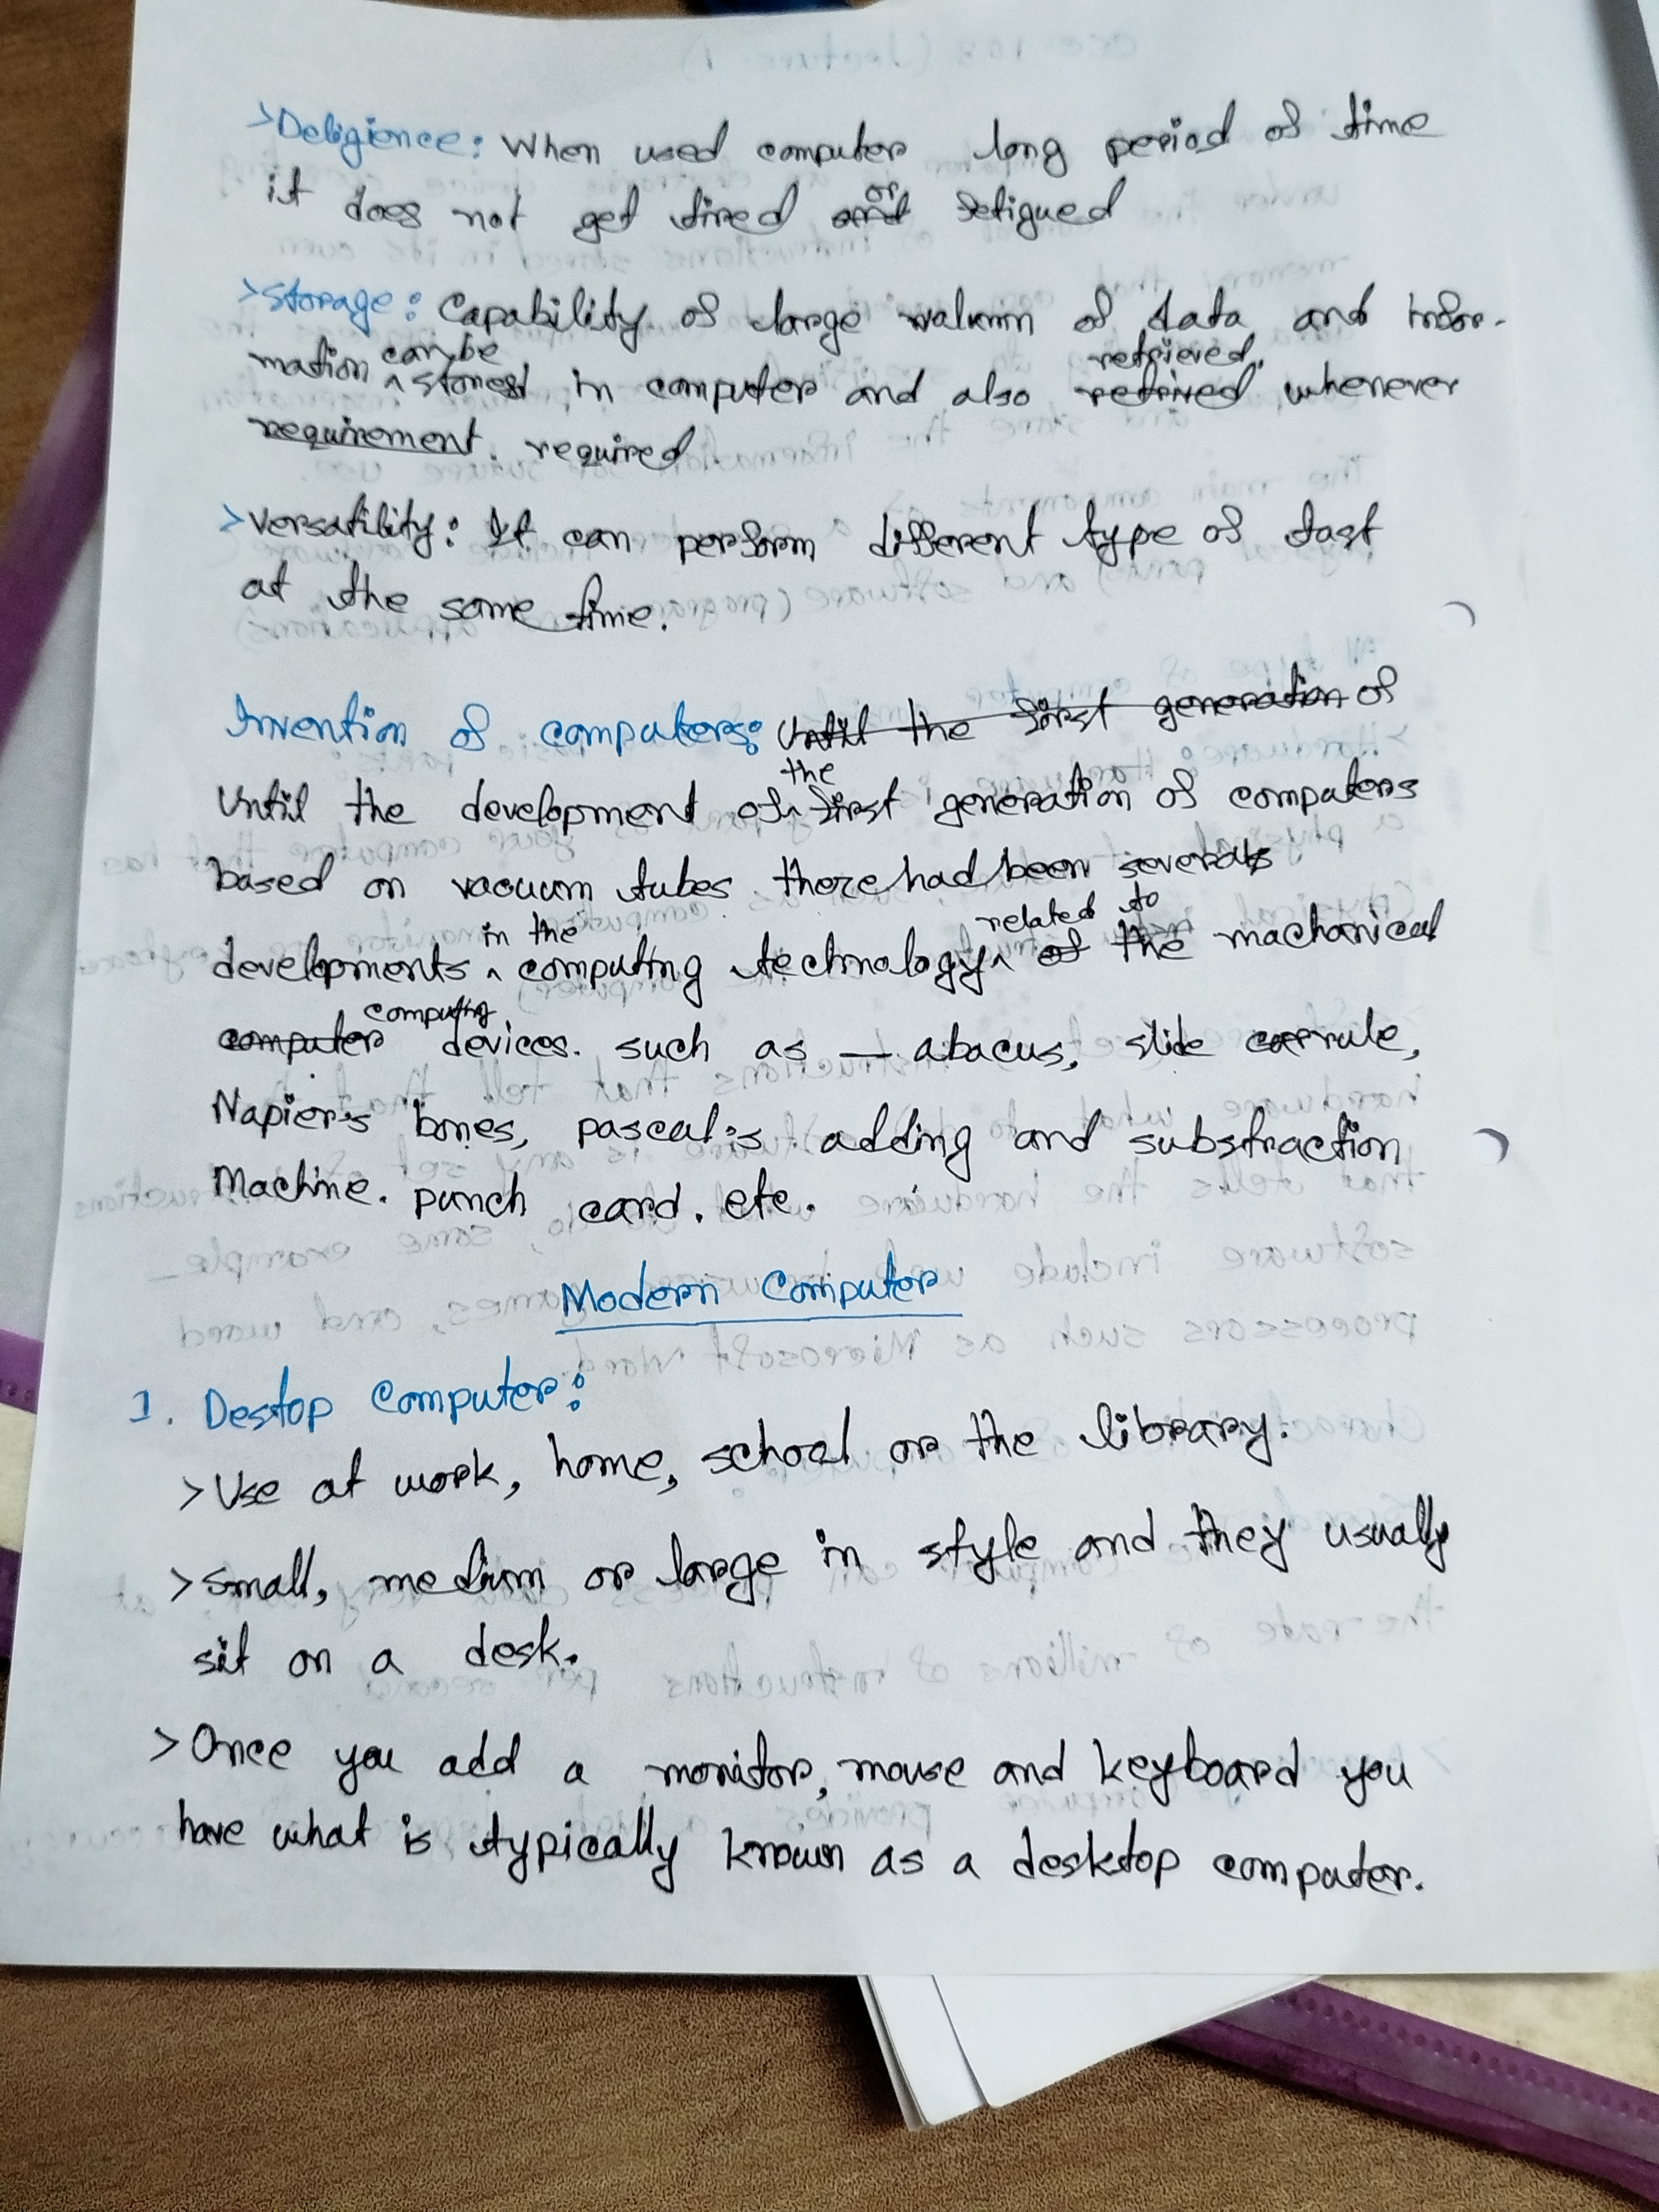 >Deligience: When used computer long period of time
it does not get tired or fetigued
>Storage: Capability of large valumn of data and infor-
mation can be stored in computer and also retrieved whenever
required
>Versatility: It can perform different type of tast
at the same time.
Invention of computers: Until the first generation of
Until the development of the first generation of computers
based on vacuum tubes there had been several
developments in the computing technology related to the machanical
computing devices. such as — abacus, slide rule,
Napier's bones, pascal's adding and substraction
Machine. punch card. etc.
Modern Computer
1. Destop Computer:
>Use at work, home, school or the library.
>Small, medium or large in style and they usually
sit on a desk.
>Once you add a monitor, mouse and keyboard you
have what is typically known as a desktop computer.